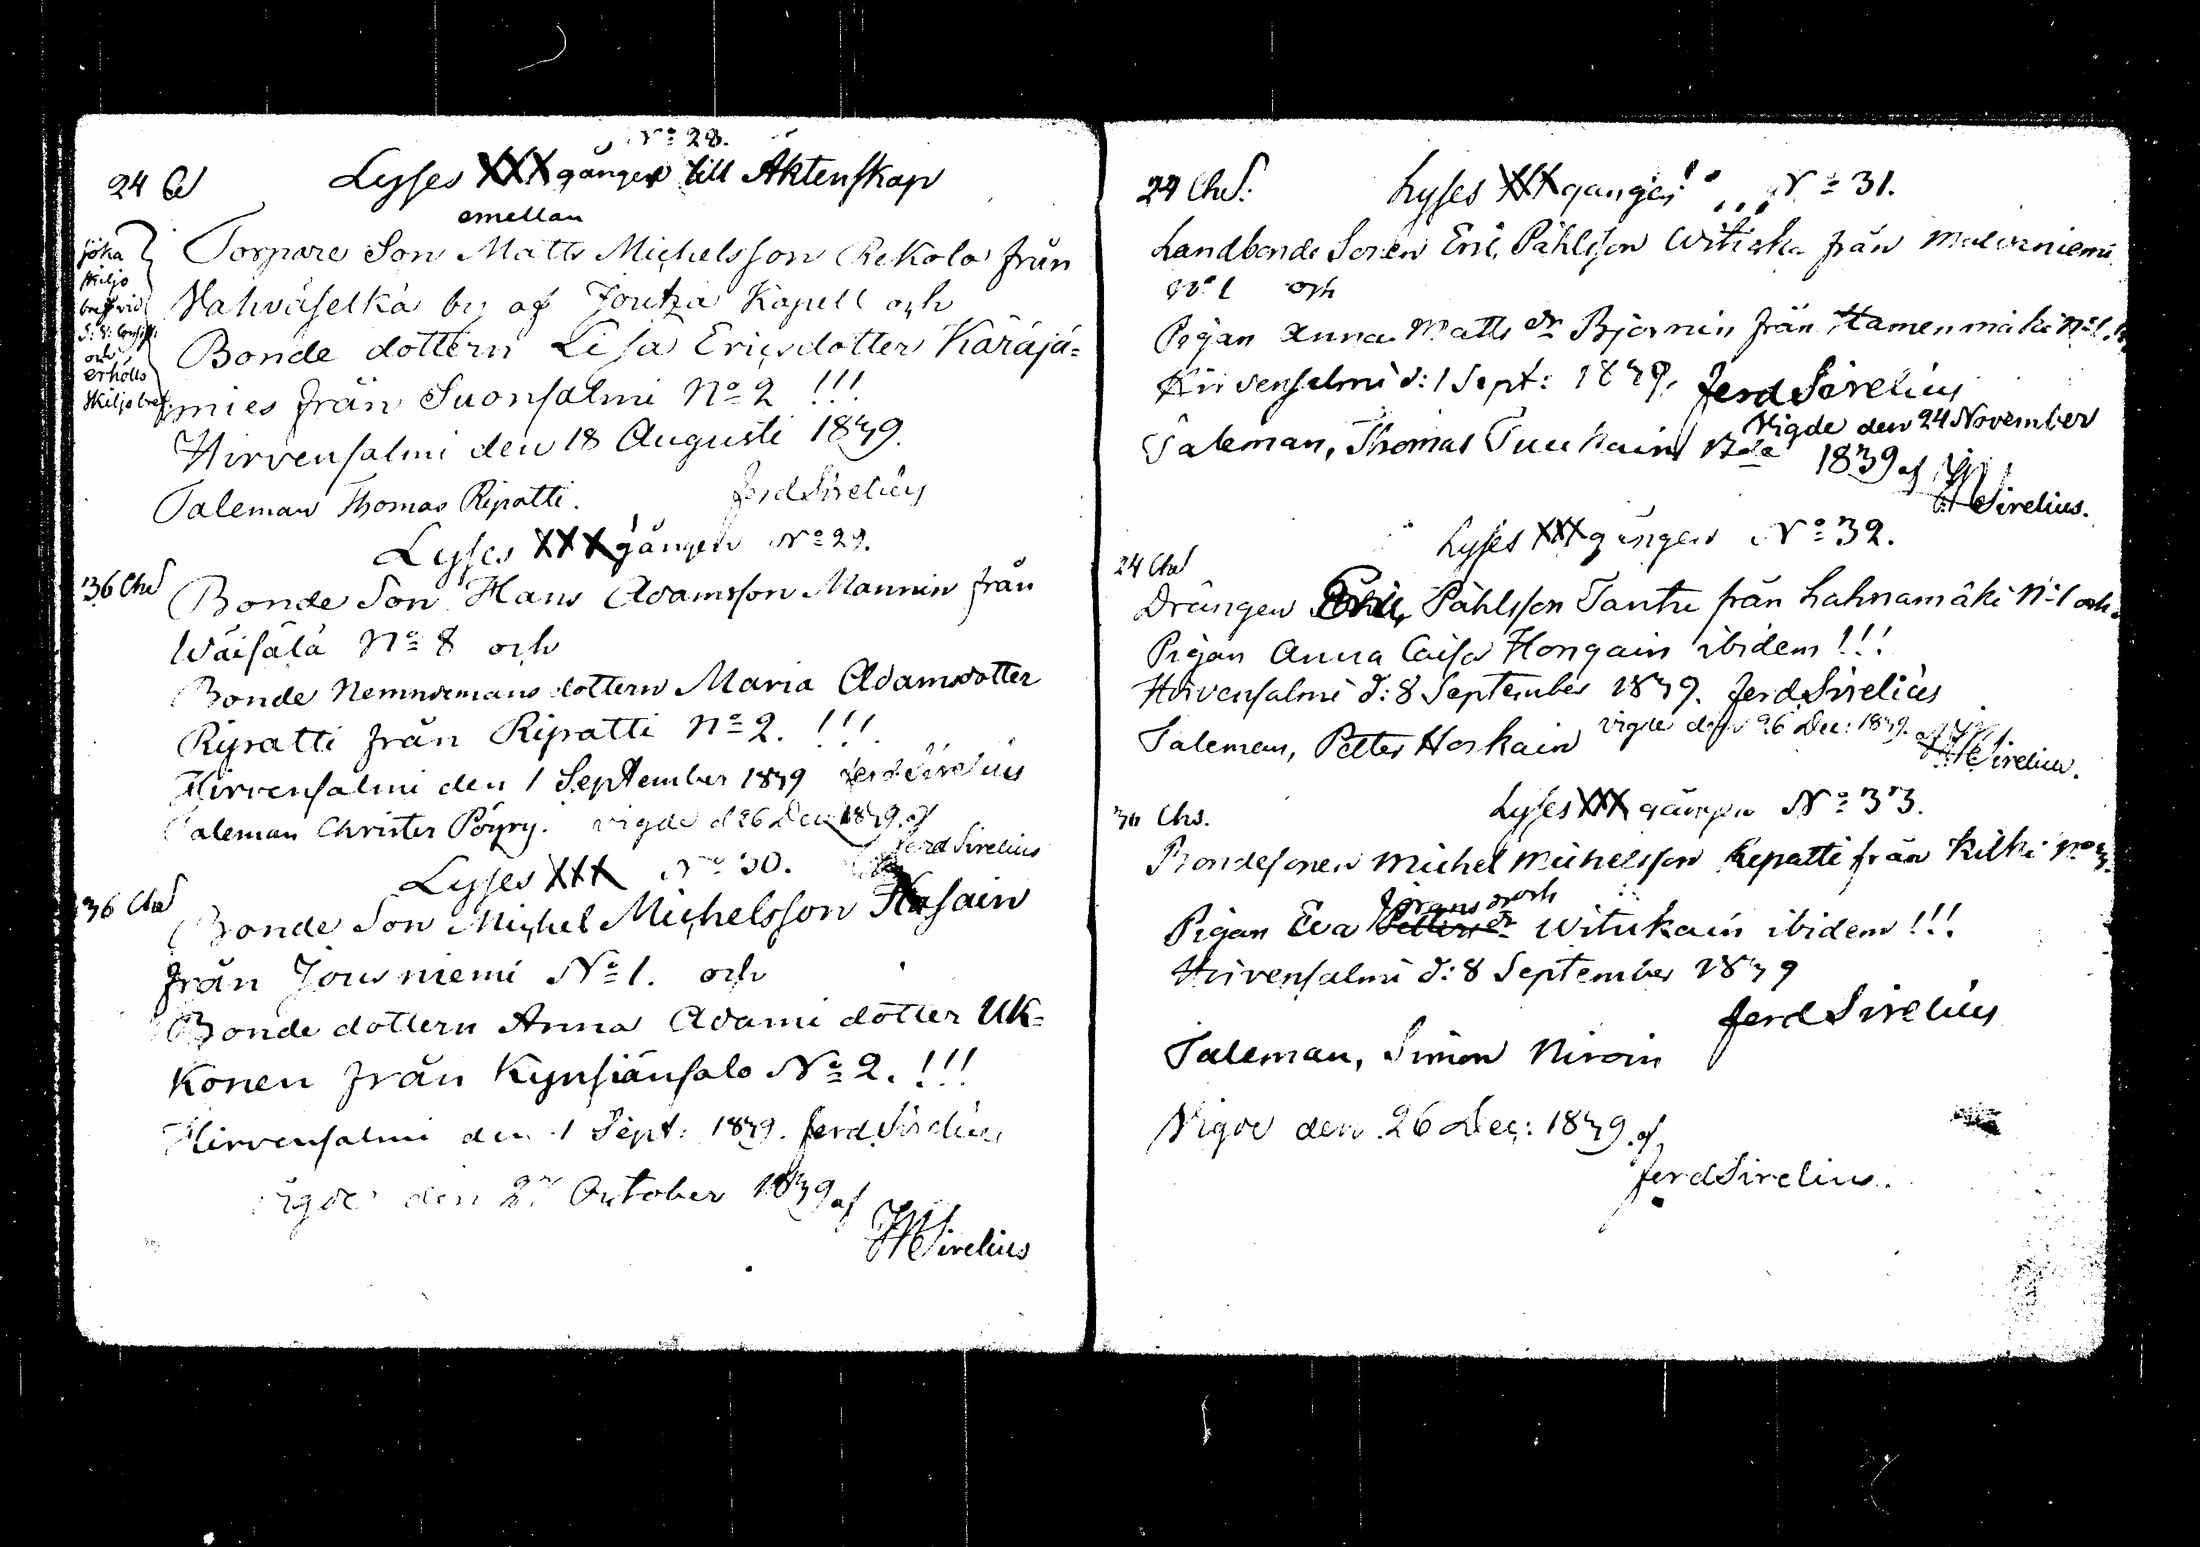 No 28.
24 Cs Lyses XXX gången till Äktenskap
emellan
söka
skiljo
bref vid
och
erhölls
skiljobref
Torpare Son Matts Michelsson Rekola från
Vahväselkä by af Joutza Kapell och
Bonde dottern Lisa Ericsdotter Käräjä=
mies från Suonsalmi No 2 !!!
Hirvensalmi den 18 Augusti 1839.
Taleman Thomas Ripatti. Ferd Sirelius
Lyses XXX gången No 29.
36 Chs Bonde Son Hans Adamsson Mannin från
Wäisälä No 8 och
Bonde Nemndemans dottern Maria Adamsdotter
Ripatti från Ripatti No 2. !!!
Hirvensalmi den 1 September 1839 Ferd Sirelius
Taleman Christer Pöyry. vigde d 26 Dec 1839. af
Ferd Sirelius
Lyses XXX No 30.
36 Chs Bonde Son Michel Michelsson Hasain
från Jousniemi No 1. och
Bonde dottern Anna Adami dotter Uk=
konen från Kynsiänsalo No 2. !!!
Hirvensalmi den 1 Sept: 1839. Ferd Sirelius
vigde den 27 October 1839 af
Sirelius
24 Chs: Lyses XXX gången No 31.
Landbonde Sonen Eric Påhlsson Witiska från
No 1 och
Pigan Anna Matts dr Björnin från Hamenmäki No 1
Hirvensalmi d: 1 Sept: 1839. Ferd Sirelius
Vigde den 24 November
Taleman, Thomas Tuukain 1839 af
Sirelius.
Lyses XXX gången No 32.
24 Chs
Drängen Påhlsson Tanttu från Lahnamäki No 1 och
Pigan Anna Caisa Hongain ibidem !!!
Hirvensalmi d: 8 September 1839. Ferd Sirelius
Taleman, Petter Horkain vigde den 26 Dec: 1839. af
Sirelius.
30 Chs. Lyses XXX gången No 33.
Bondesonen Michel Michelsson Ripatti från Kilki No 3.
Görans och
Pigan Eva Petters dr Witukain ibidem !!!
Hirvensalmi d: 8 September 1839
Ferd Sirelius
Taleman, Simon Niroin
Vigde den 26 Dec: 1839. af
Ferd Sirelius.